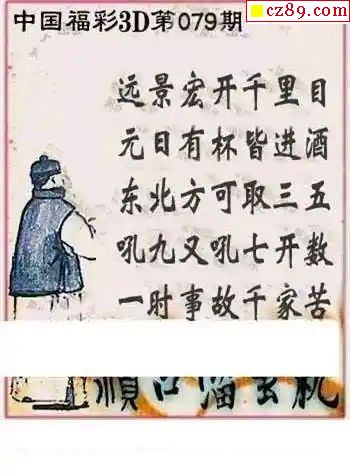 cz89.com
中国福彩3D第079期
远景宏开千里目
元日有杯皆进酒
东北方可取三五
吼九又吼七开数
一时事故千家苦